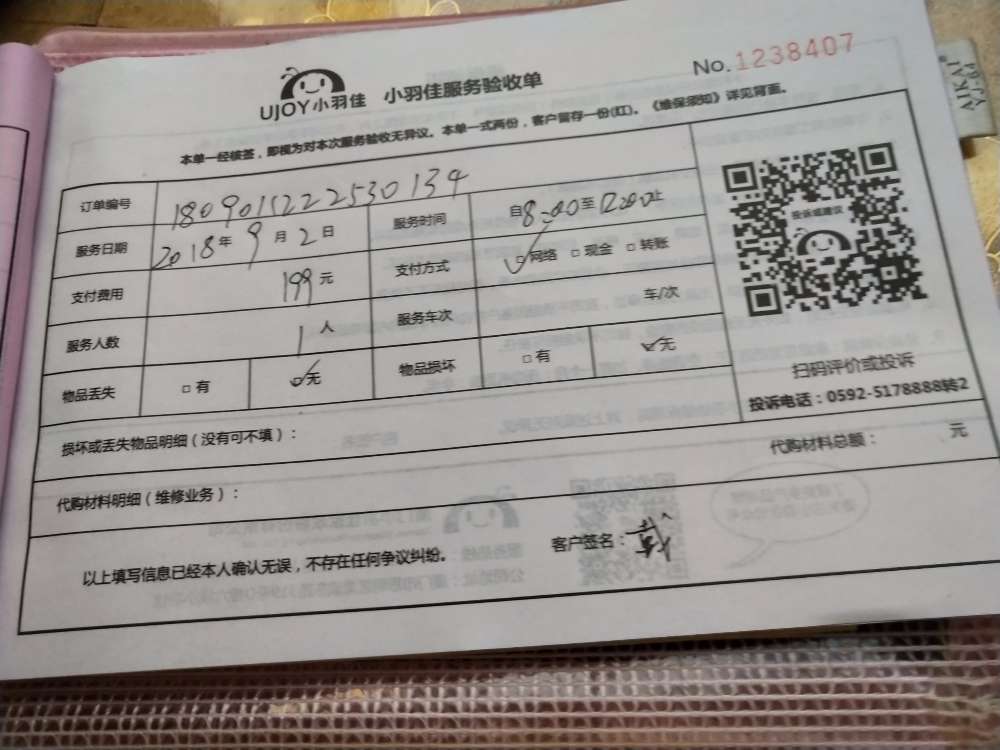 No.1238407
UJOY小羽佳 小羽佳服务验收单
本单一经核签，即视为对本次服务验收无异议。本单一式两份，客户留存一份(红)。《维保须知》详见背面。
订单编号 180901522253​0134 服务时间 自8:00至12:00止
服务日期 2018年9月2日 支付方式 ☑网络 □现金 □转账
支付费用 199元 服务车次 车/次
服务人数 1人 物品损坏 □有 ☑无
物品丢失 □有 ☑无
投诉或建议
扫码评价或投诉
投诉电话：0592-5178888转2
损坏或丢失物品明细（没有可不填）：
代购材料明细（维修业务）： 代购材料总额： 元
以上填写信息已经本人确认无误，不存在任何争议纠纷。 客户签名：